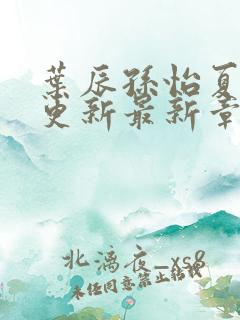 葉辰孫怡夏
更新最新章
北漓夜_xs8
未经同意禁止转载